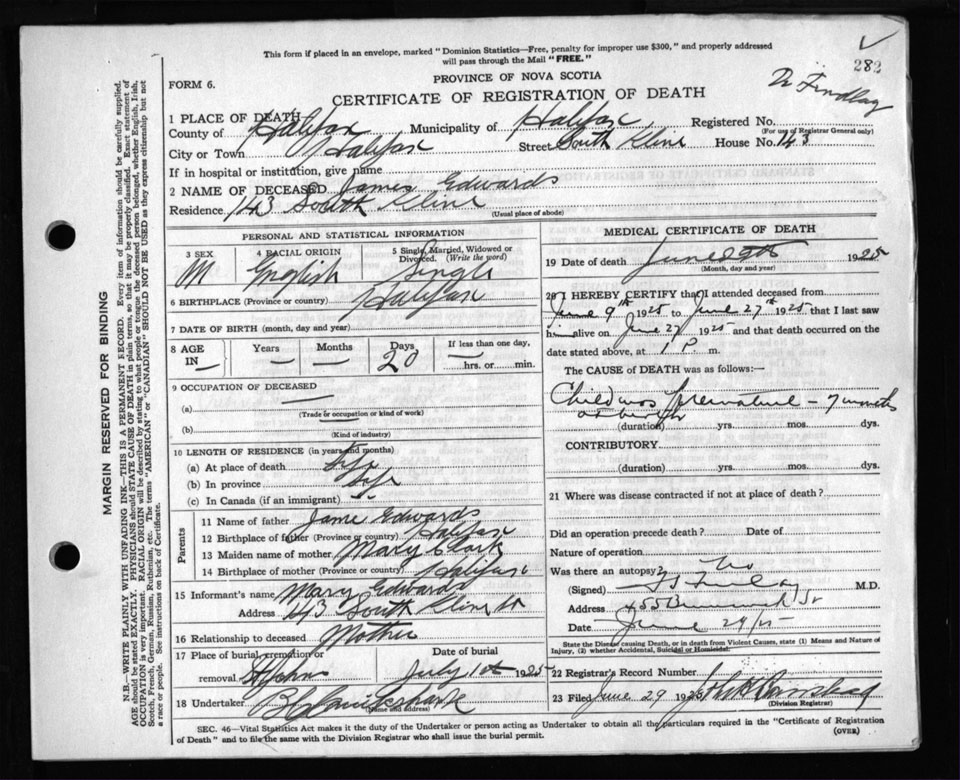 This form if placed in an envelope, marked "Dominion Statistics—Free, penalty for improper use $300," and properly addressed
will pass through the Mail "FREE."
282
PROVINCE OF NOVA SCOTIA
Dr Findlay
FORM 6.
CERTIFICATE OF REGISTRATION OF DEATH
1 PLACE OF DEATH
County of Halifax Municipality of Halifax Registered No.
(For use of Registrar General only)
City or Town Halifax Street South Kline House No. 143
If in hospital or institution, give name
2 NAME OF DECEASED James Edwards
Residence 143 South Kline
(Usual place of abode)
PERSONAL AND STATISTICAL INFORMATION
3 SEX M
4 RACIAL ORIGIN English
5 Single, Married, Widowed or Divorced. (Write the word) Single
6 BIRTHPLACE (Province or country) Halifax
7 DATE OF BIRTH (month, day and year)
8 AGE IN Years — Months — Days 20 If less than one day, hrs. or min.
9 OCCUPATION OF DECEASED
(a)
(Trade or occupation or kind of work)
(b)
(Kind of industry)
10 LENGTH OF RESIDENCE (in years and months)
(a) At place of death Life
(b) In province Life
(c) In Canada (if an immigrant)
Parents
11 Name of father Jame Edwards
12 Birthplace of father (Province or country) Halifax
13 Maiden name of mother Mary
14 Birthplace of mother (Province or country) Halifax
15 Informant's name Mary Edwards
Address 143 South Kline St
16 Relationship to deceased Mother
17 Place of burial, cremation or removal St John Date of burial July 1st 1925
18 Undertaker
(Name and address)
MEDICAL CERTIFICATE OF DEATH
19 Date of death June 1925
(Month, day and year)
20 I HEREBY CERTIFY that I attended deceased from
June 9th 1925 to June 27th 1925 that I last saw
him alive on June 27 1925 and that death occurred on the
date stated above, at 1 P. m.
The CAUSE of DEATH was as follows:—
Child was premature – 7 months
at birth
(duration) yrs. mos. dys.
CONTRIBUTORY
(duration) yrs. mos. dys.
21 Where was disease contracted if not at place of death?
Did an operation precede death? Date of
Nature of operation
Was there an autopsy? No
(Signed) Findlay M.D.
Address 455 Brunswick St
Date June 29/25
State the Disease causing Death, or in death from Violent Causes, state (1) Means and Nature of
Injury, (2) whether Accidental, Suicidal or Homicidal.
22 Registrar's Record Number
23 Filed June 29 1925
(Division Registrar)
SEC. 46—Vital Statistics Act makes it the duty of the Undertaker or person acting as Undertaker to obtain all the particulars required in the "Certificate of Registration
of Death" and to file the same with the Division Registrar who shall issue the burial permit.
(OVER)
MARGIN RESERVED FOR BINDING
N.B.—WRITE PLAINLY WITH UNFADING INK—THIS IS A PERMANENT RECORD. Every item of information should be carefully supplied.
AGE should be stated EXACTLY. PHYSICIANS should STATE CAUSE OF DEATH in plain terms, so that it may be properly classified. Exact statement of
OCCUPATION is very important. RACIAL ORIGIN will be described by stating to what people or tongue the deceased person belonged, whether English, Irish,
Scotch, French, German, Russian, Ruthenian, etc. The terms "AMERICAN" or "CANADIAN" SHOULD NOT BE USED as they express citizenship but not
a race or people. See instructions on back of Certificate.